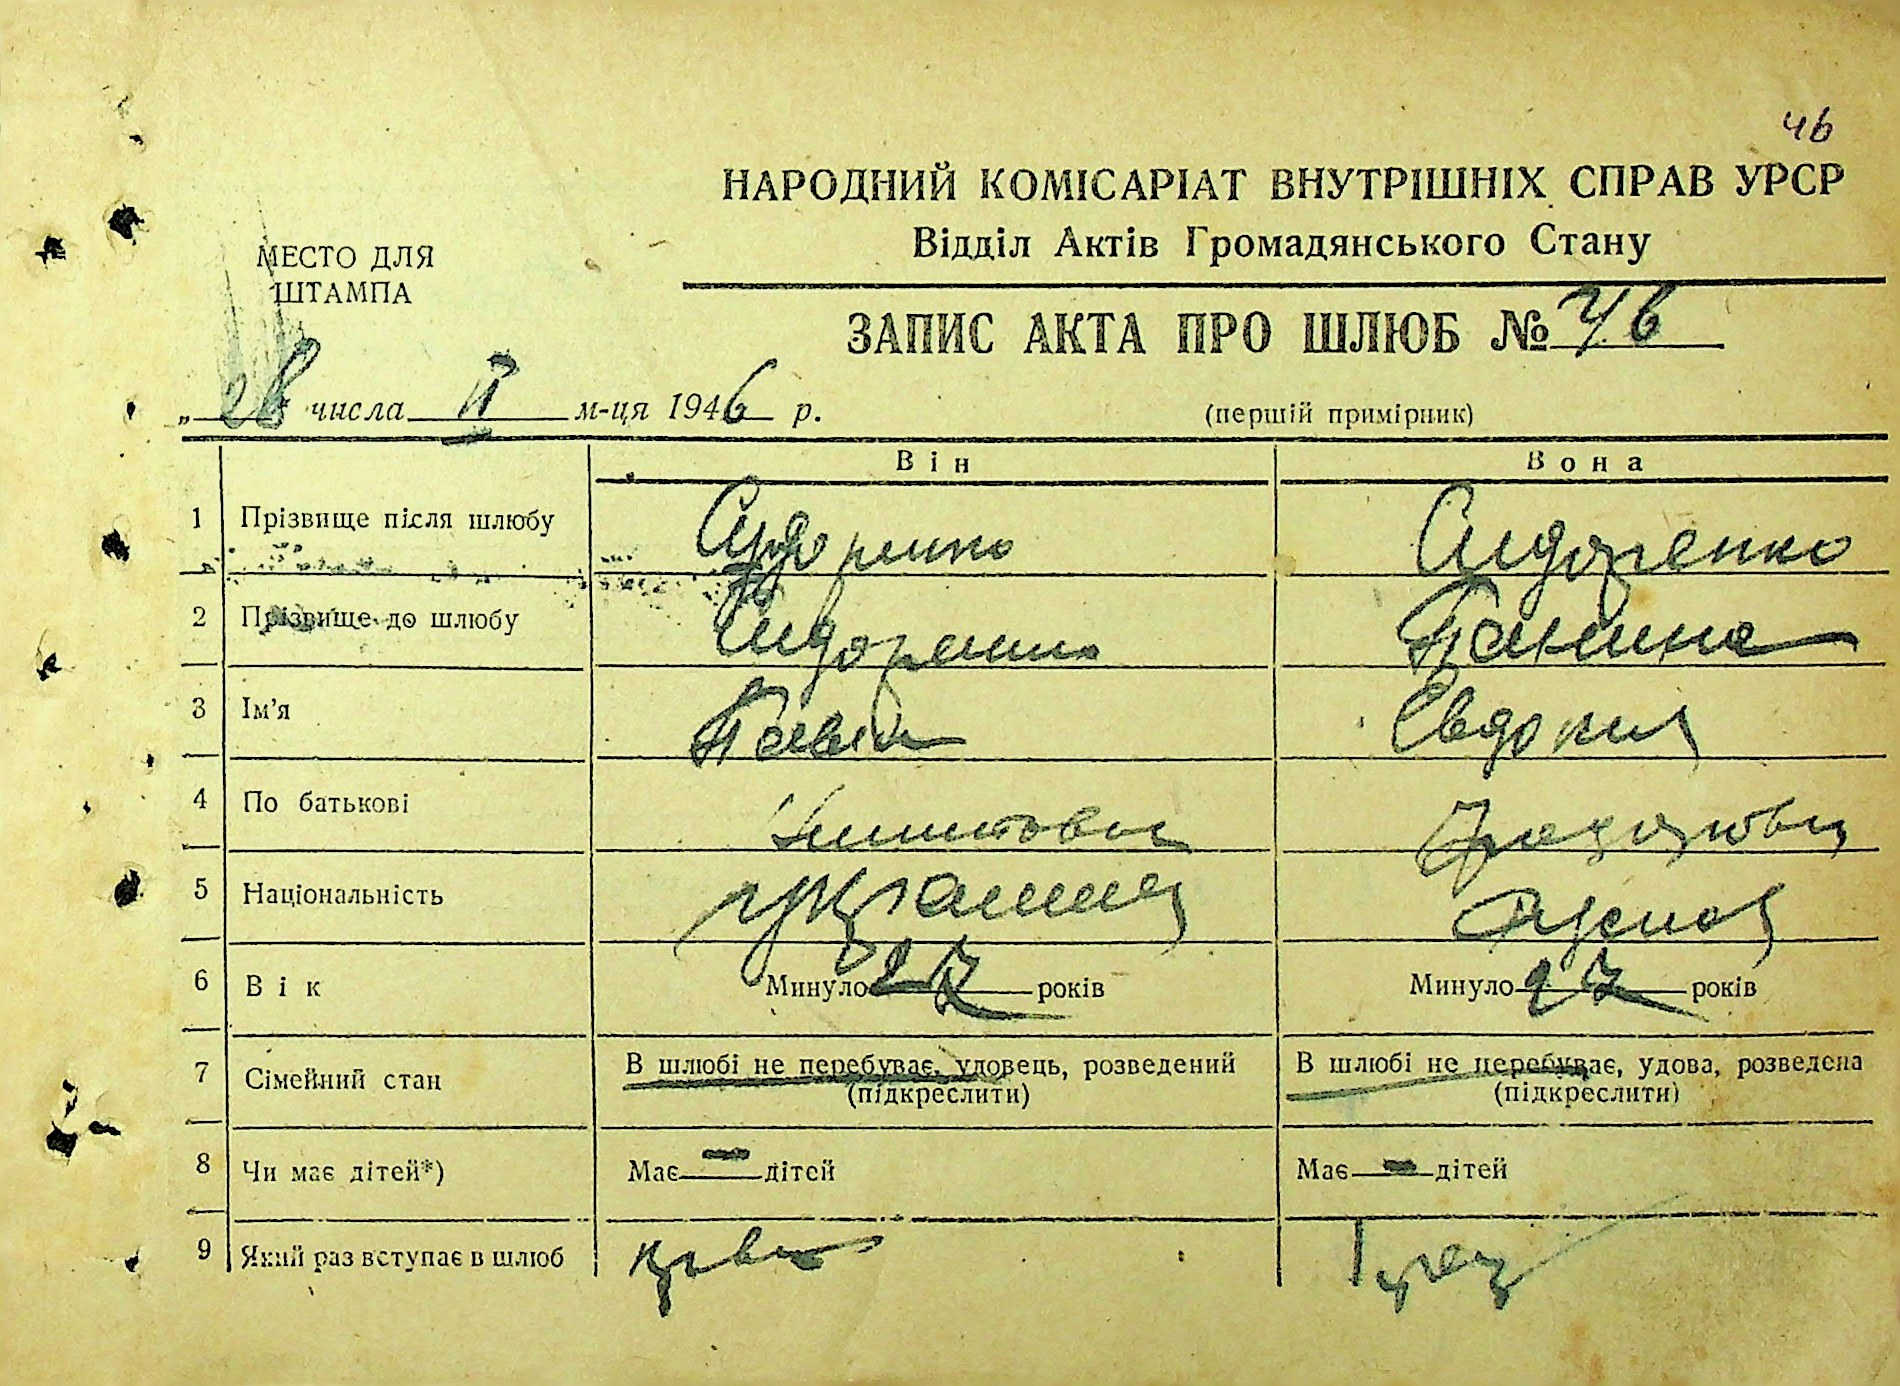 46
НАРОДНИЙ КОМІСАРІАТ ВНУТРІШНІХ СПРАВ УРСР
Відділ Актів Громадянського Стану
МЕСТО ДЛЯ
ШТАМПА
ЗАПИС АКТА ПРО ШЛЮБ № 46
„ числа II м-ця 1946 р.
(першій примірник)
Він Вона
1 Прізвище після шлюбу Сидоренко Сидоренко
2 Прізвище до шлюбу Сидоренко Панина
3 Ім'я Павел Евдокия
4 По батькові
5 Національність украинец русская
6 Вік Минуло 27 років Минуло 27 років
7 Сімейний стан В шлюбі не перебуває, удовець, розведений В шлюбі не перебуває, удова, розведена
(підкреслити) (підкреслити)
8 Чи має дітей*) Має — дітей Має — дітей
9 Який раз вступає в шлюб